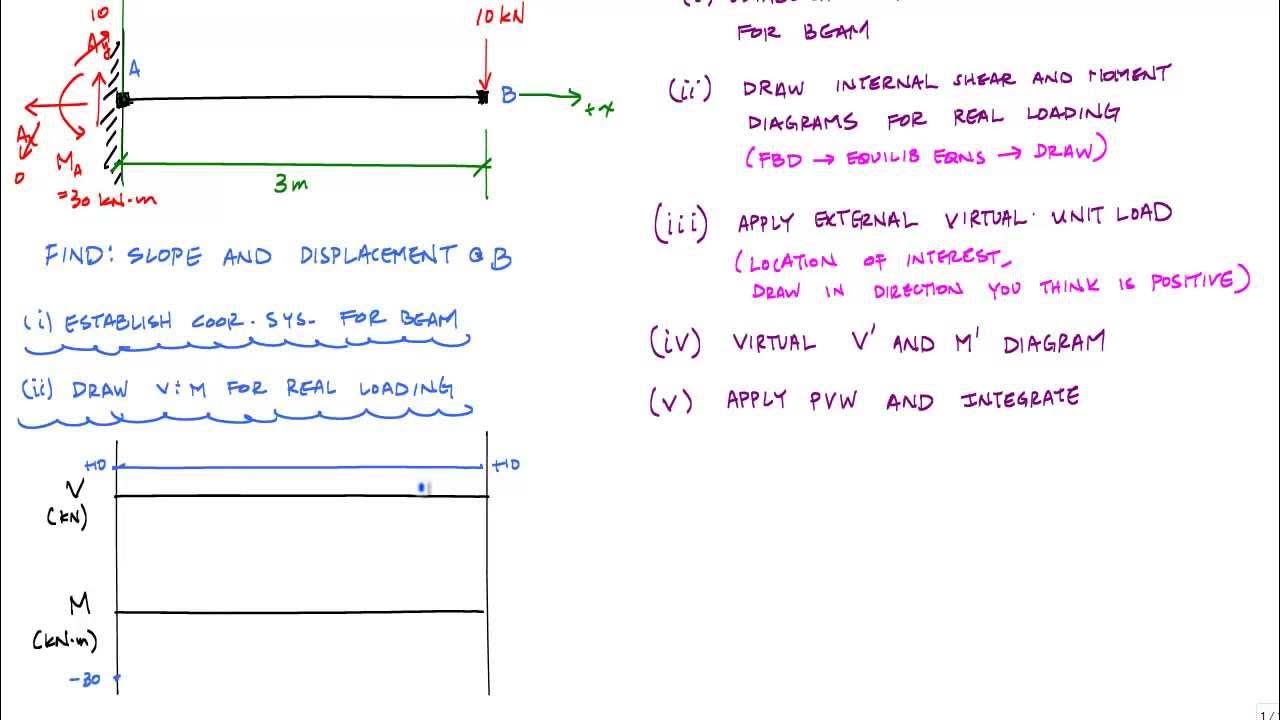 10
Ay
A
10 kN
B
+x
Ax
0
MA
=30 kN·m
3m
FIND: SLOPE AND DISPLACEMENT @ B
(i) ESTABLISH COOR. SYS. FOR BEAM
(ii) DRAW V & M FOR REAL LOADING
+10
+10
V
(kN)
M
(kN·m)
-30
FOR BEAM
(ii) DRAW INTERNAL SHEAR AND MOMENT
DIAGRAMS FOR REAL LOADING
(FBD → EQUILIB EQNS → DRAW)
(iii) APPLY EXTERNAL VIRTUAL UNIT LOAD
(LOCATION OF INTEREST,
DRAW IN DIRECTION YOU THINK IS POSITIVE)
(iv) VIRTUAL V' AND M' DIAGRAM
(v) APPLY PVW AND INTEGRATE